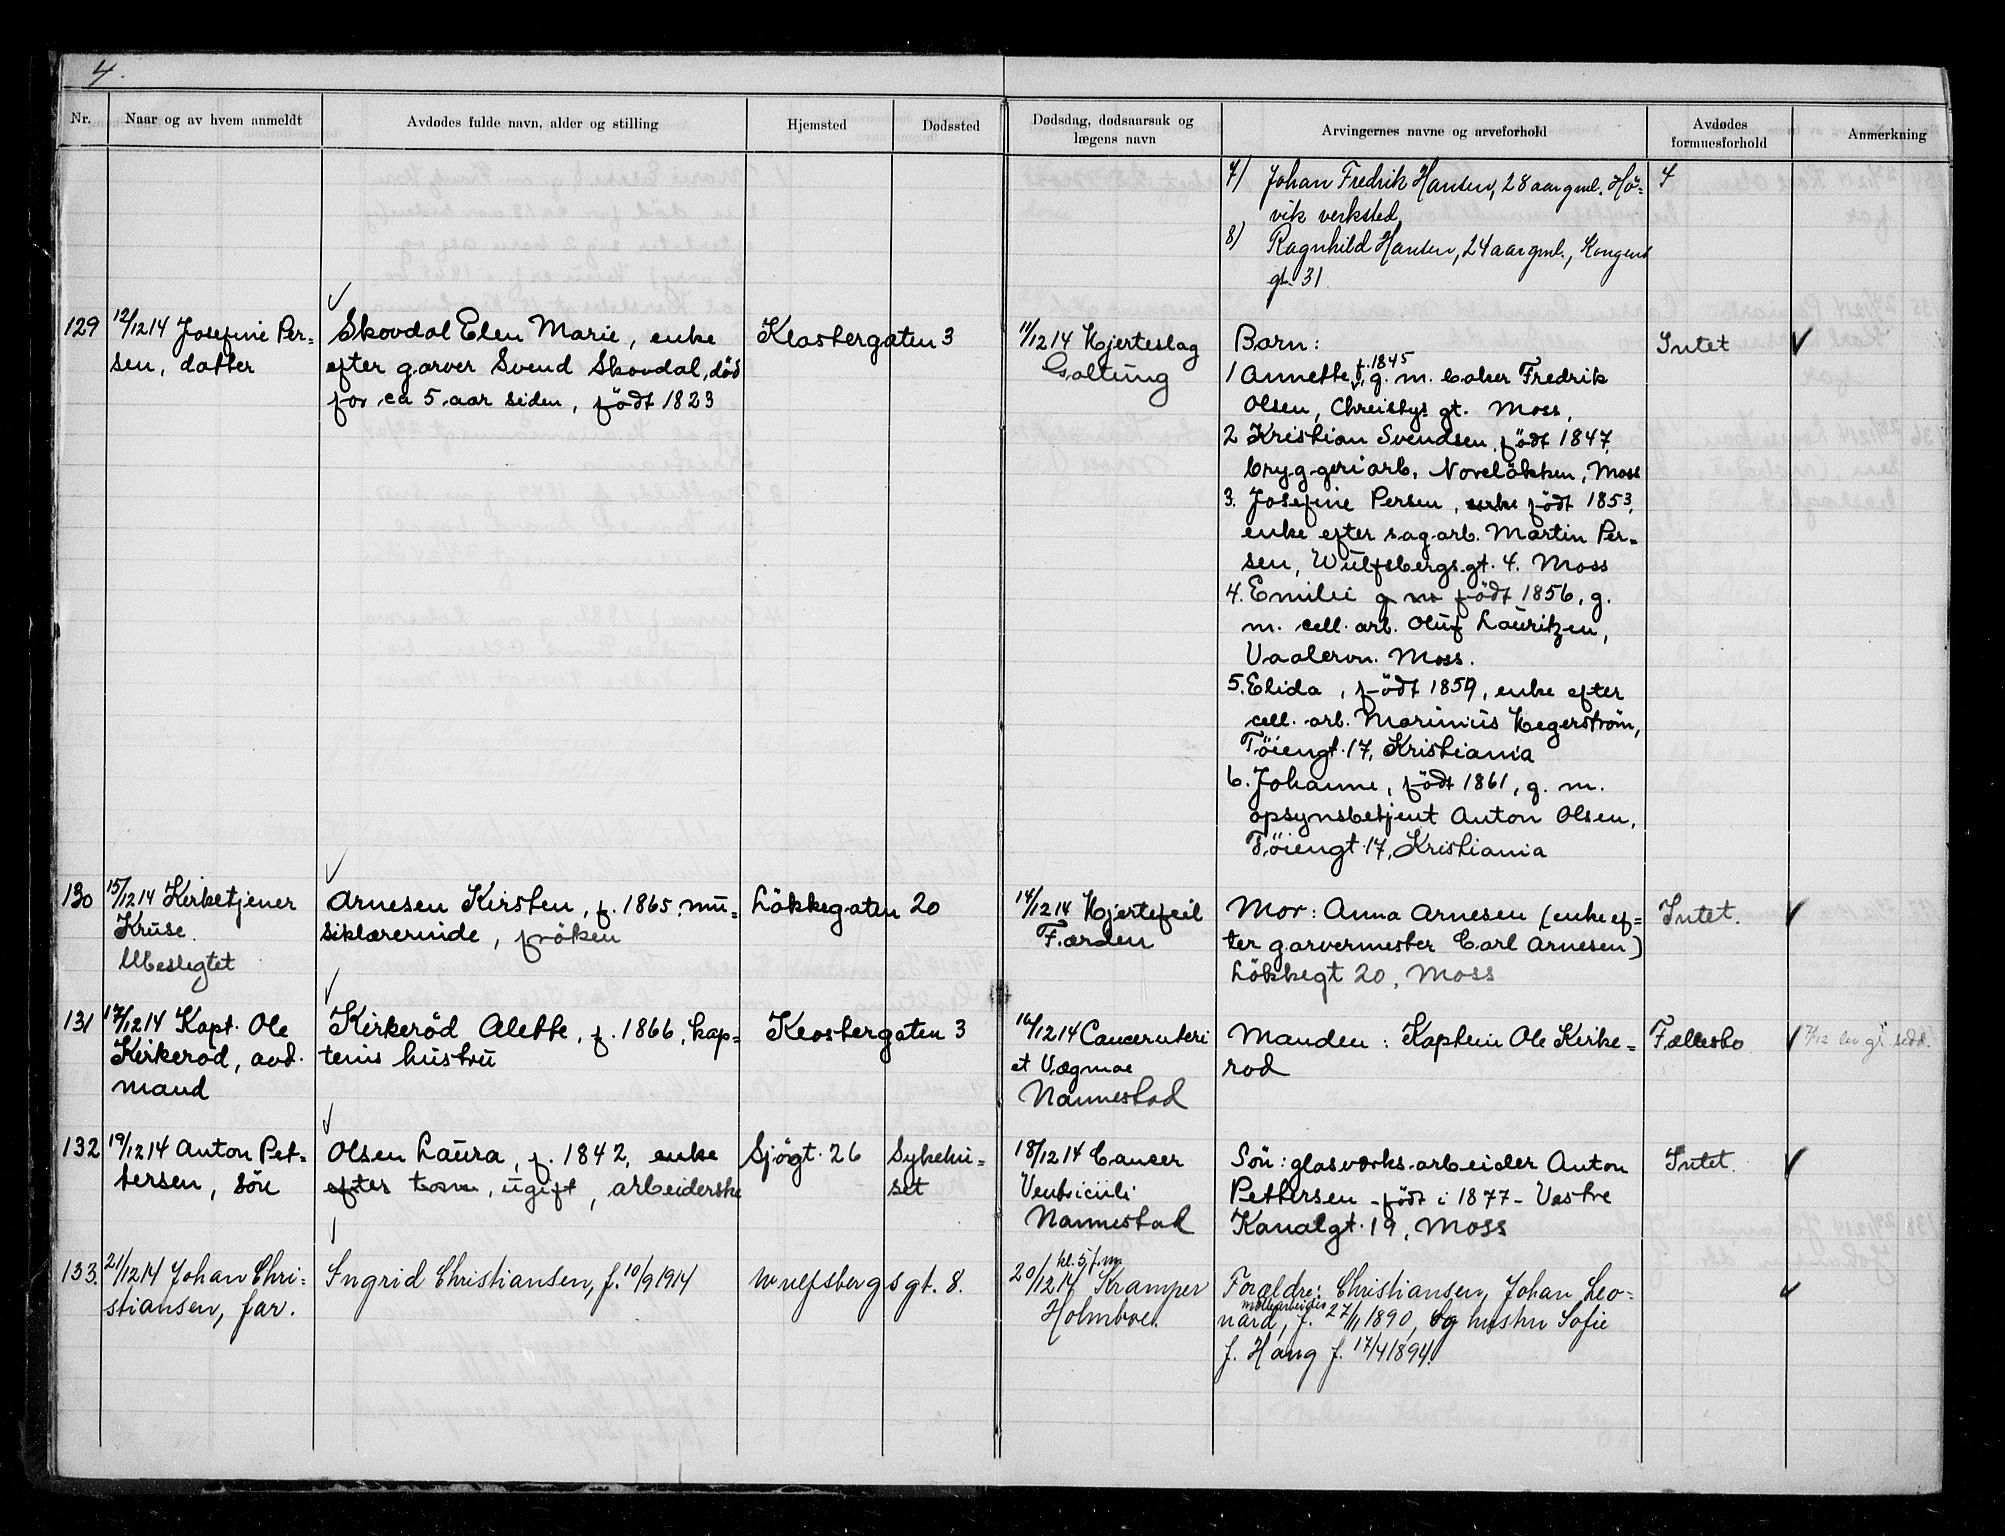 4.
Nr.
Naar og av hvem anmeldt
Avdødes fulde navn, alder og stilling
Hjemsted
Dødssted
Dødsdag, dødsaarsak og
lægens navn
Arvingernes navne og arveforhold
Avdødes
formuesforhold
Anmerkning
7) Johan Fredrik Hansen, 28 aar gml. Hö-
vik verksted
8) Ragnhild Hansen, 24 aar gml., Kongens
gt. 31
129
12/12 14 Josefine Per-
sen, datter
Skovdal Elen Marie, enke
efter garver Svend Skovdal, död
for ca 5 aar siden, födt 1823
Klostergaten 3
11/12 14 Hjerteslag
Galtung
Barn:
1 Annette, f. 1845 g. m. baker Fredrik
Olsen, Chreistys gt. Moss,
2 Kristian Svendsen, födt 1847,
bryggeriarb. Noreløkken, Moss
3. Josefine Persen, enke födt 1853,
enke efter sagarb. Martin Per-
sen, Wulfsbergs gt. 4. Moss
4. Emilie g m födt 1856, g.
m. cell. arb. Oluf Lauritzen,
Vaalervn. Moss.
5. Elida, födt 1859, enke efter
cell. arb. Marinius Hegerström,
Töiengt. 17, Kristiania
6. Johanne, födt 1861, g. m.
opsynsbetjent Anton Olsen,
Töiengt. 17, Kristiania
Intet
130
15/12 14 Kirketjener
Kruse.
Ubeslegtet
Arnesen Kirsten, f. 1865. mu-
siklærerinde, fröken
Lökkegaten 20
14/12 14 Hjertefeil
Færden
Mor: Anna Arnesen (enke ef-
ter garvermester Carl Arnesen)
Lökkegt 20, Moss
Intet.
131
17/12 14 Kapt. Ole
Kirkerod, avd.
mand
Kirkeröd Alette, f. 1866, kap-
teins hustru
Klostergaten 3
16/12 14 Cancer uteri
et Vagmae
Nannestad
Manden: Kaptein Ole Kirke-
rod
Fællesbo
7/12 lev. gr. sedd.
132
19/12 14 Anton Pet-
tersen, sön
Olsen Laura, f. 1842, enke
efter tom, ugift, arbeiderske
Sjögt. 26
Sykehu-
set
18/12 14 Cancer
Ventriculi
Nannestad
Sön: glasværks-arbeider Anton
Pettersen - födt i 1877 - Vestre
Kanalgt. 19, Moss
Intet.
133.
21/12 14 Johan Chri-
stiansen, far.
Ingrid Christiansen, f. 10/9 1914
Wulfsbergsgt. 8.
20/12 14 kl. 5 f.m. Kramper
Holmboe.
Forældre: Christiansen, Johan Leo-
nard, møllearbeider f. 27/1 1890, og hustru Sofie
f. Haug f. 17/4 1894.